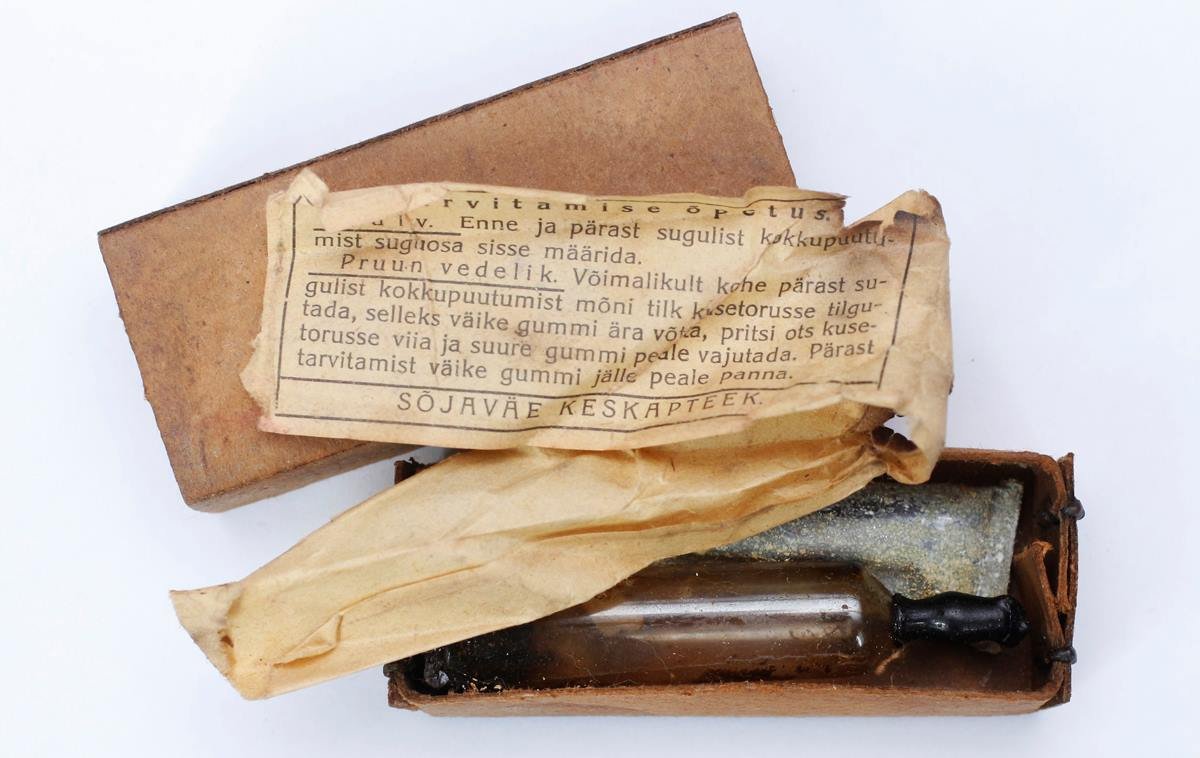 rvitamise õpetus.
Enne ja pärast sugulist kokkupuutu-
mist suguosa sisse määrida.
Pruun vedelik. Võimalikult kohe pärast su-
gulist kokkupuutumist mõni tilk kusetorusse tilgu-
tada, selleks väike gummi ära võtta, pritsi ots kuse-
torusse viia ja suure gummi peale vajutada. Pärast
tarvitamist väike gummi jälle peale panna.
SÕJAVÄE KESKAPTEEK.